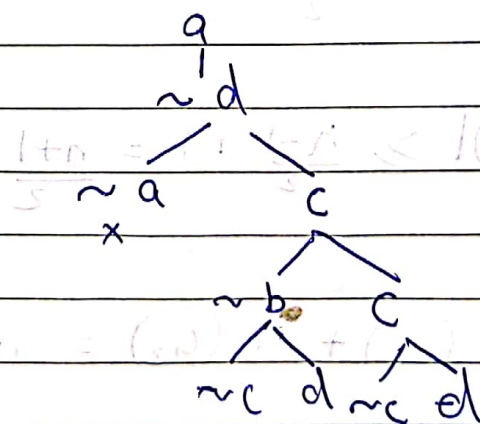 a
~ d
~ a c
x
~ b c
~c d ~c d